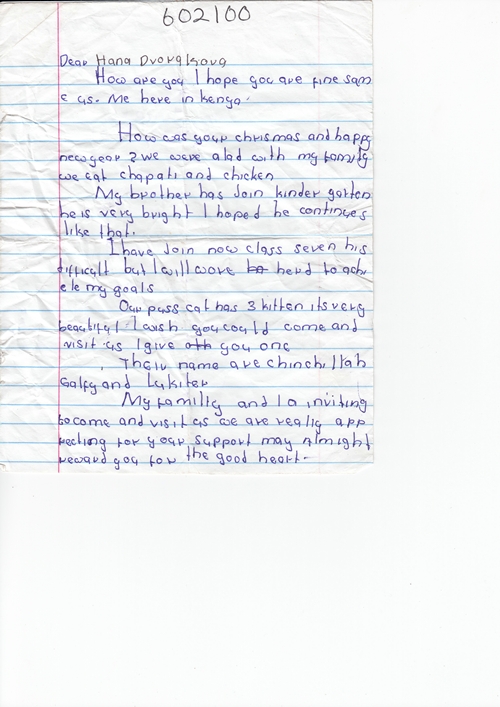 602100
Dear Hana Dvorakova
How are you I hope you are fine sam
e as. Me here in kenya.
How was your chrismas and happy
new year ? we were alad with my family
we eat chapati and chicken
My brother has Join kinder garten
he is very bright I hoped he continues
like that.
I have Join now class seven his
difficalt but I will work to herd to achi
my goals
Our pass cat has 3 kitten its very
beautiful I wish you could come and
visit as I give you one
Their name are chinchillah
and Lukiter
My familly and I a inviting
to come and visit as we are really app
reciing for your support may Almight
reward you for the good heart.